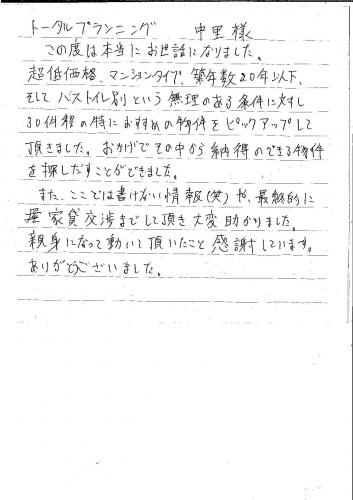 トータルプランニング 中里 様
この度は本当にお世話になりました。
超低価格、マンションタイプ、築年数20年以下、
そしてバストイレ別という無理のある条件に対し
30件程の特におすすめの物件をピックアップして
頂きました。おかげでその中から納得のできる物件
を探しだすことができました。
また、ここでは書けない情報(笑)や、最終的に
家賃交渉までして頂き大変助かりました。
親身になって動いて頂いたこと感謝しています。
ありがとうございました。